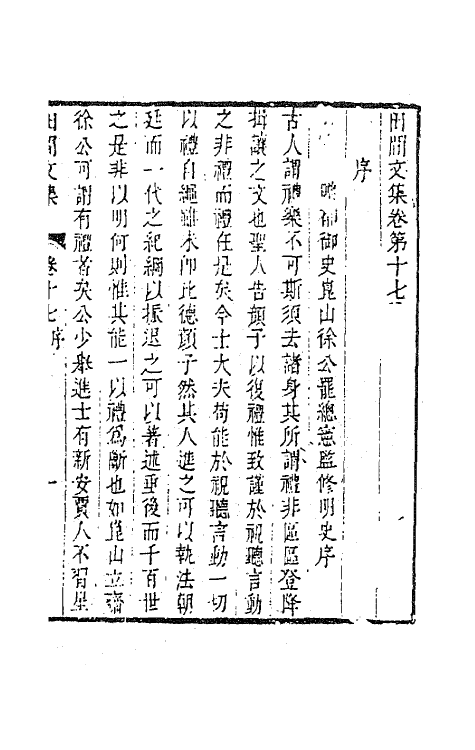 田間文集卷第十七
序
贈都御史崑山徐公罷總憲監修明史序
古人謂禮樂不可斯須去諸身其所謂禮非區區登降
揖讓之文也聖人告顏子以復禮惟致謹於視聽言動
之非禮而禮在是矣今士大夫苟能於視聽言動一切
以禮自繩雖未卽比德顏子然其人進之可以執法朝
廷而一代之紀綱以振退之可以著述垂後而千百世
之是非以明何則惟其能一以禮爲斷也如崑山立齋
徐公可謂有禮者矣公少舉進士有新安賈人不習星
田間文集 卷十七 序 一